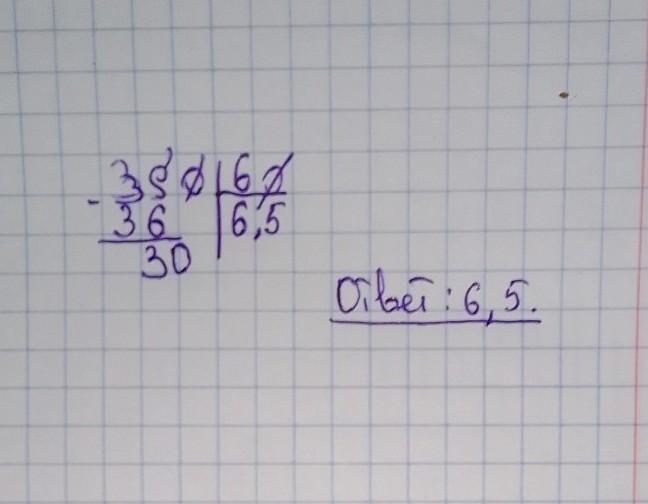 390 | 60
- 36 | 6,5
30
Ответ: 6,5.